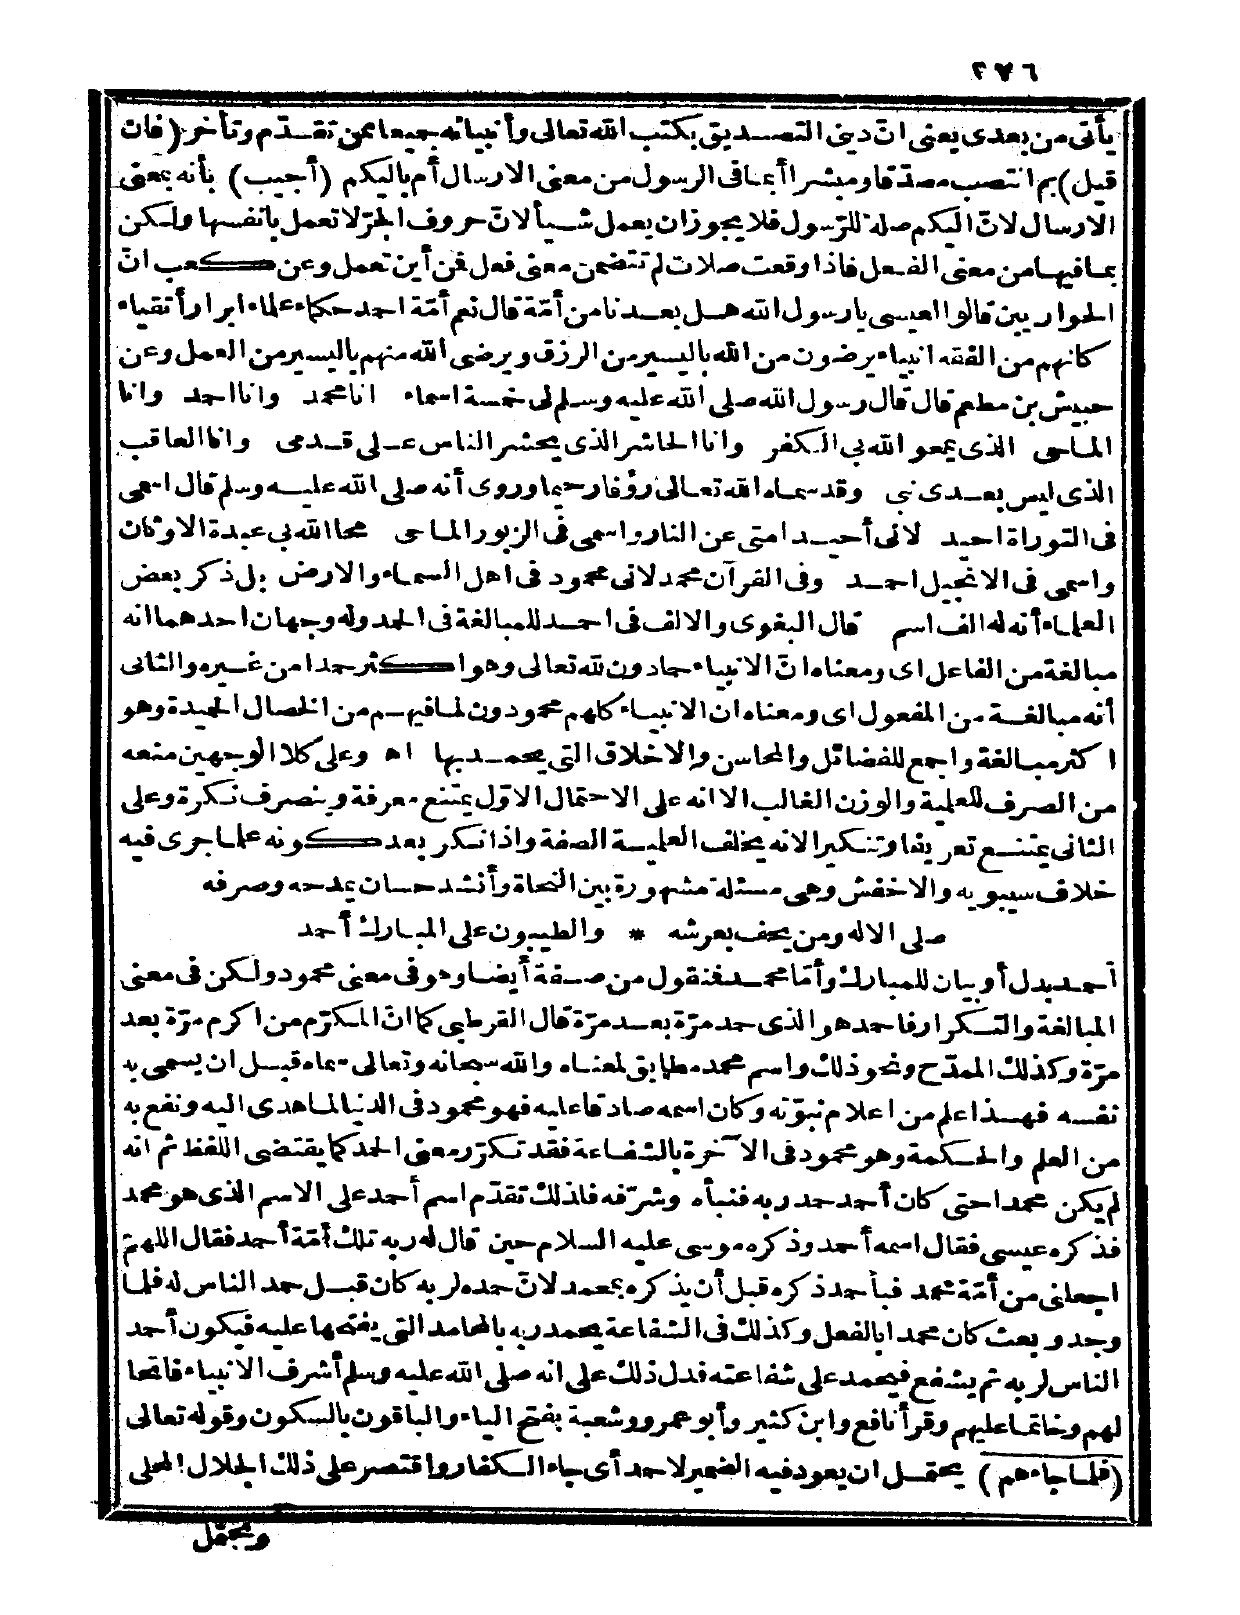 ٢٧٦
يأتى من بعدى يعنى انّ دينى التصديق بكتب الله تعالى وأنبيائه جميعا ممن تقدّم وتأخر (فان
قيل) بم انتصب مصدّقا ومبشرا أبما فى الرسول من معنى الارسال أم باليكم (أجيب) بأنه بمعنى
الارسال لانّ اليكم صلة للرّسول فلا يجوز ان يعمل شيأ لانّ حروف الجرّ لا تعمل بانفسها ولكن
بما فيها من معنى الفعل فاذا وقعت صلات لم تتضمن معنى فعل فمن أين تعمل وعن كعب انّ
الحواريين قالوا لعيسى يا رسول الله هل بعدنا من أمّة قال نعم أمّة احمد حكماء علماء ابرار أتقياء
كانهم من الفقه انبياء يرضون من الله باليسير من الرزق ويرضى الله منهم باليسير من العمل وعن
حبيش بن مطعم قال قال رسول الله صلى الله عليه وسلم لى خمسة اسماء انا محمد وانا احمد وانا
الماحى الذى يمحو الله بى الكفر وانا الحاشر الذى يحشر الناس على قدمى وانا العاقب
الذى ليس بعدى نبى وقد سماه الله تعالى رؤفا رحيما وروى أنه صلى الله عليه وسلم قال اسمى
فى التوراة احيد لانى أحيد امتى عن النار واسمى فى الزبور الماحى محا الله بى عبدة الاوثان
واسمى فى الانجيل احمد وفى القرآن محمد لانى محمود فى اهل السماء والارض بل ذكر بعض
العلماء أنه له الف اسم قال البغوى والالف فى احمد للمبالغة فى الحمد وله وجهان احدهما انه
مبالغة من الفاعل اى ومعناه انّ الانبياء حمادون لله تعالى وهو اكثر حمدا من غيره والثانى
أنه مبالغة من المفعول اى ومعناه ان الانبياء كلهم محمودون لما فيهم من الخصال الحميدة وهو
اكثر مبالغة واجمع للفضائل والمحاسن والاخلاق التى يحمد بها اه وعلى كلا الوجهين منعه
من الصرف للعلمية والوزن الغالب الا انه على الاحتمال الاوّل يمتنع معرفة وينصرف نكرة وعلى
الثانى يمتنع تعريفا وتنكيرا لانه يخلف العلمية الصفة واذا نكر بعد كونه علما جرى فيه
خلاف سيبويه والاخفش وهى مسئلة مشهورة بين النحاة وأنشد حسان يمدحه وصرفه
صلى الاله ومن يحف بعرشه * والطيبون على المبارك أحمد
أحمد بدل أو بيان للمبارك وأمّا محمد فنقول من صفة أيضا وهو فى معنى محمود ولكن فى معنى
المبالغة والتكرار فاحمد هو الذى حمد مرّة بعد مرّة قال القرطبى كما انّ المكرّم من اكرم مرّة بعد
مرّة وكذلك الممدّح ونحو ذلك واسم محمد مطابق لمعناه والله سبحانه وتعالى سماه قبل ان يسمى به
نفسه فهذا علم من اعلام نبوّته وكان اسمه صادقا عليه فهو محمود فى الدنيا لما هدى اليه ونفع به
من العلم والحكمة وهو محمود فى الآخرة بالشفاعة فقد تكرّر معنى الحمد كما يقتضى اللفظ ثم انه
لم يكن محمدا حتى كان أحمد حمد ربه فنبأه وشرّفه فلذلك تقدّم اسم أحمد على الاسم الذى هو محمد
فذكره عيسى فقال اسمه أحمد وذكره موسى عليه السلام حين قال له ربه تلك أمّة أحمد فقال اللهمّ
اجعلنى من أمّة محمد فبأحمد ذكره قبل أن يذكره بمحمد لانّ حمده لربه كان قبل حمد الناس له فلما
وجد وبعث كان محمدا بالفعل وكذلك فى الشفاعة يحمد ربه بالمحامد التى يفتحها عليه فيكون أحمد
الناس لربه ثم يشفع فيحمد على شفاعته فدل ذلك على انه صلى الله عليه وسلم أشرف الانبياء فاتحا
لهم وخاتما عليهم وقرأ نافع وابن كثير وأبو عمرو وشعبة بفتح الياء والباقون بالسكون وقوله تعالى
(فلما جاءهم) يحتمل ان يعود فيه الضمير لاحمد أى جاء الكفار واقتصر على ذلك الجلال المحلى
ويحتمل